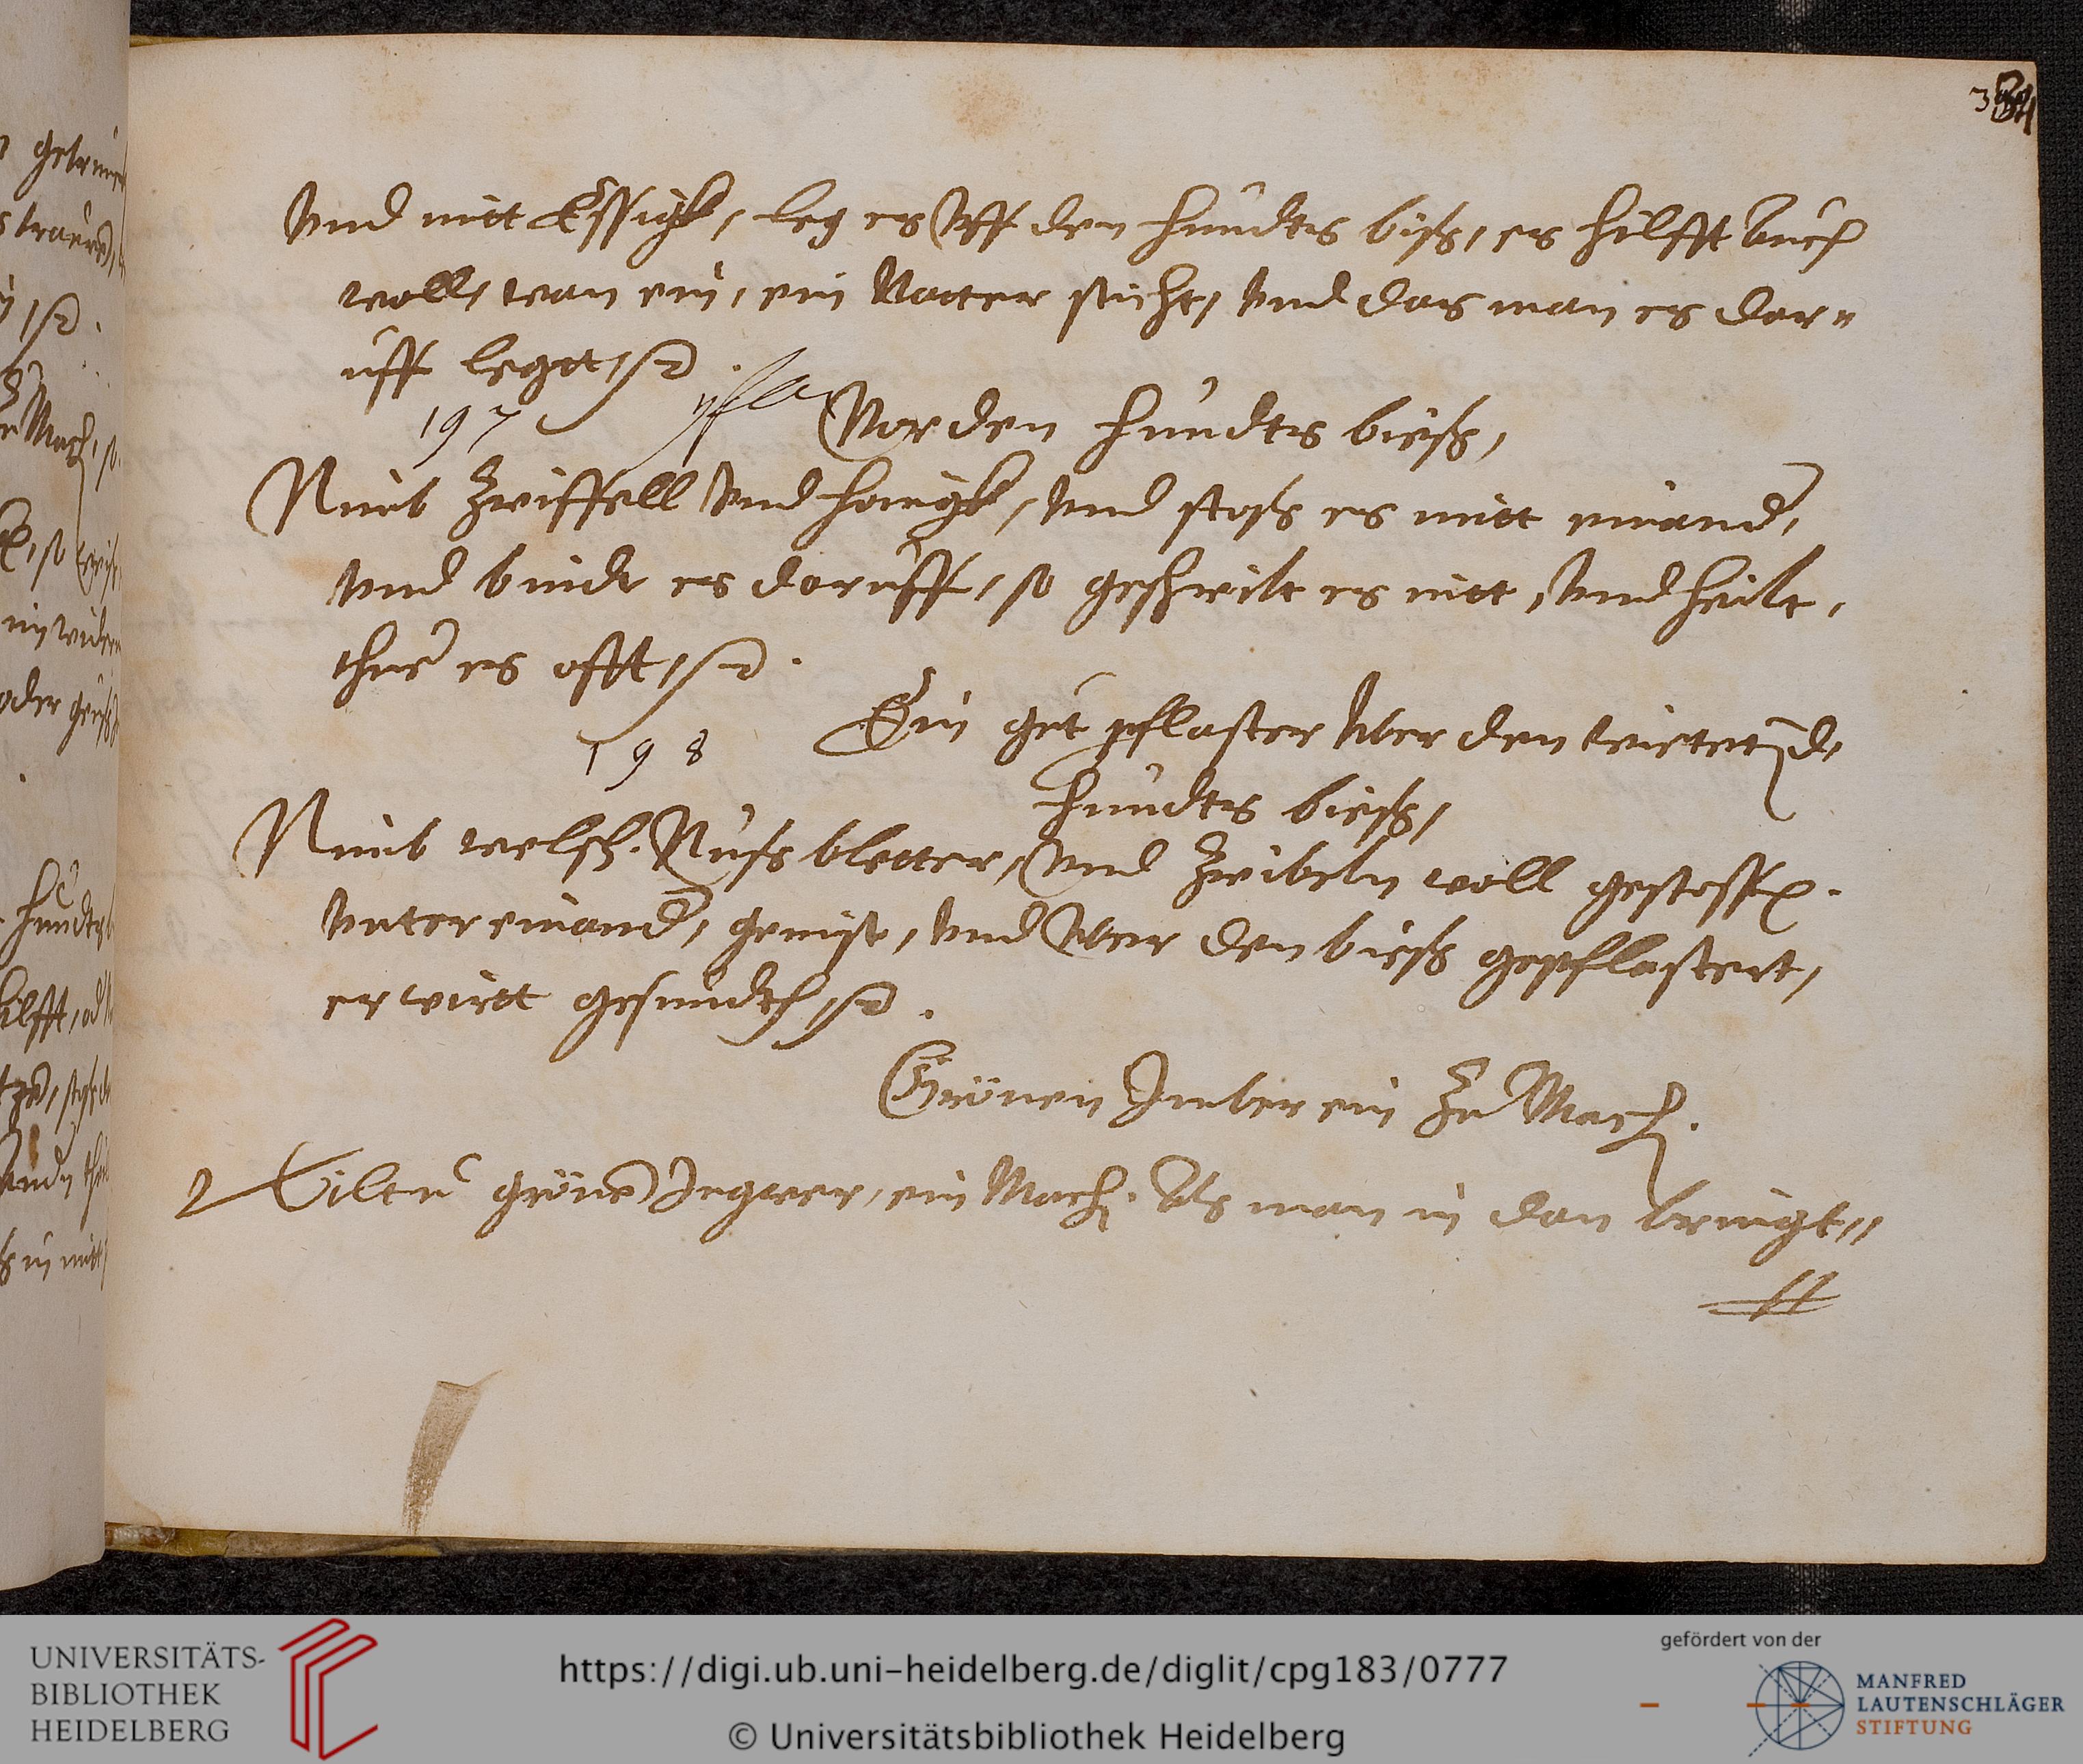 Vnd mitt Essigk, leg es vff den hundts biß, es hilfft auch
woll, wan ein, ein Natter sticht, vnd das man es dar=
uff legtt
197
Vor den hundts bieß,
Nimb Zwiffell vnd honigk, vnd stoß es mitt einand,
vnd bindt es daruff, so geschwilt es nitt, vnd heilt,
thue es offt
198 Ein gut pflaster vber den wietetend,
hundts bieß,
Nimb welsch. Nuss bletter, vnd Zwibeln woll gestossen.
vnter einand, gemist, vnd vber den bieß gepflastert,
er wirtt gesundth
Grönen Imber ein Zu Mach.
Wiltu gröne Ingwer, ein Mach. Als man in dan bringt,,
UNIVERSITÄTS-
BIBLIOTHEK
HEIDELBERG
https://digi.ub.uni-heidelberg.de/diglit/cpg183/0777
© Universitätsbibliothek Heidelberg
gefördert von der
MANFRED
LAUTENSCHLÄGER
STIFTUNG